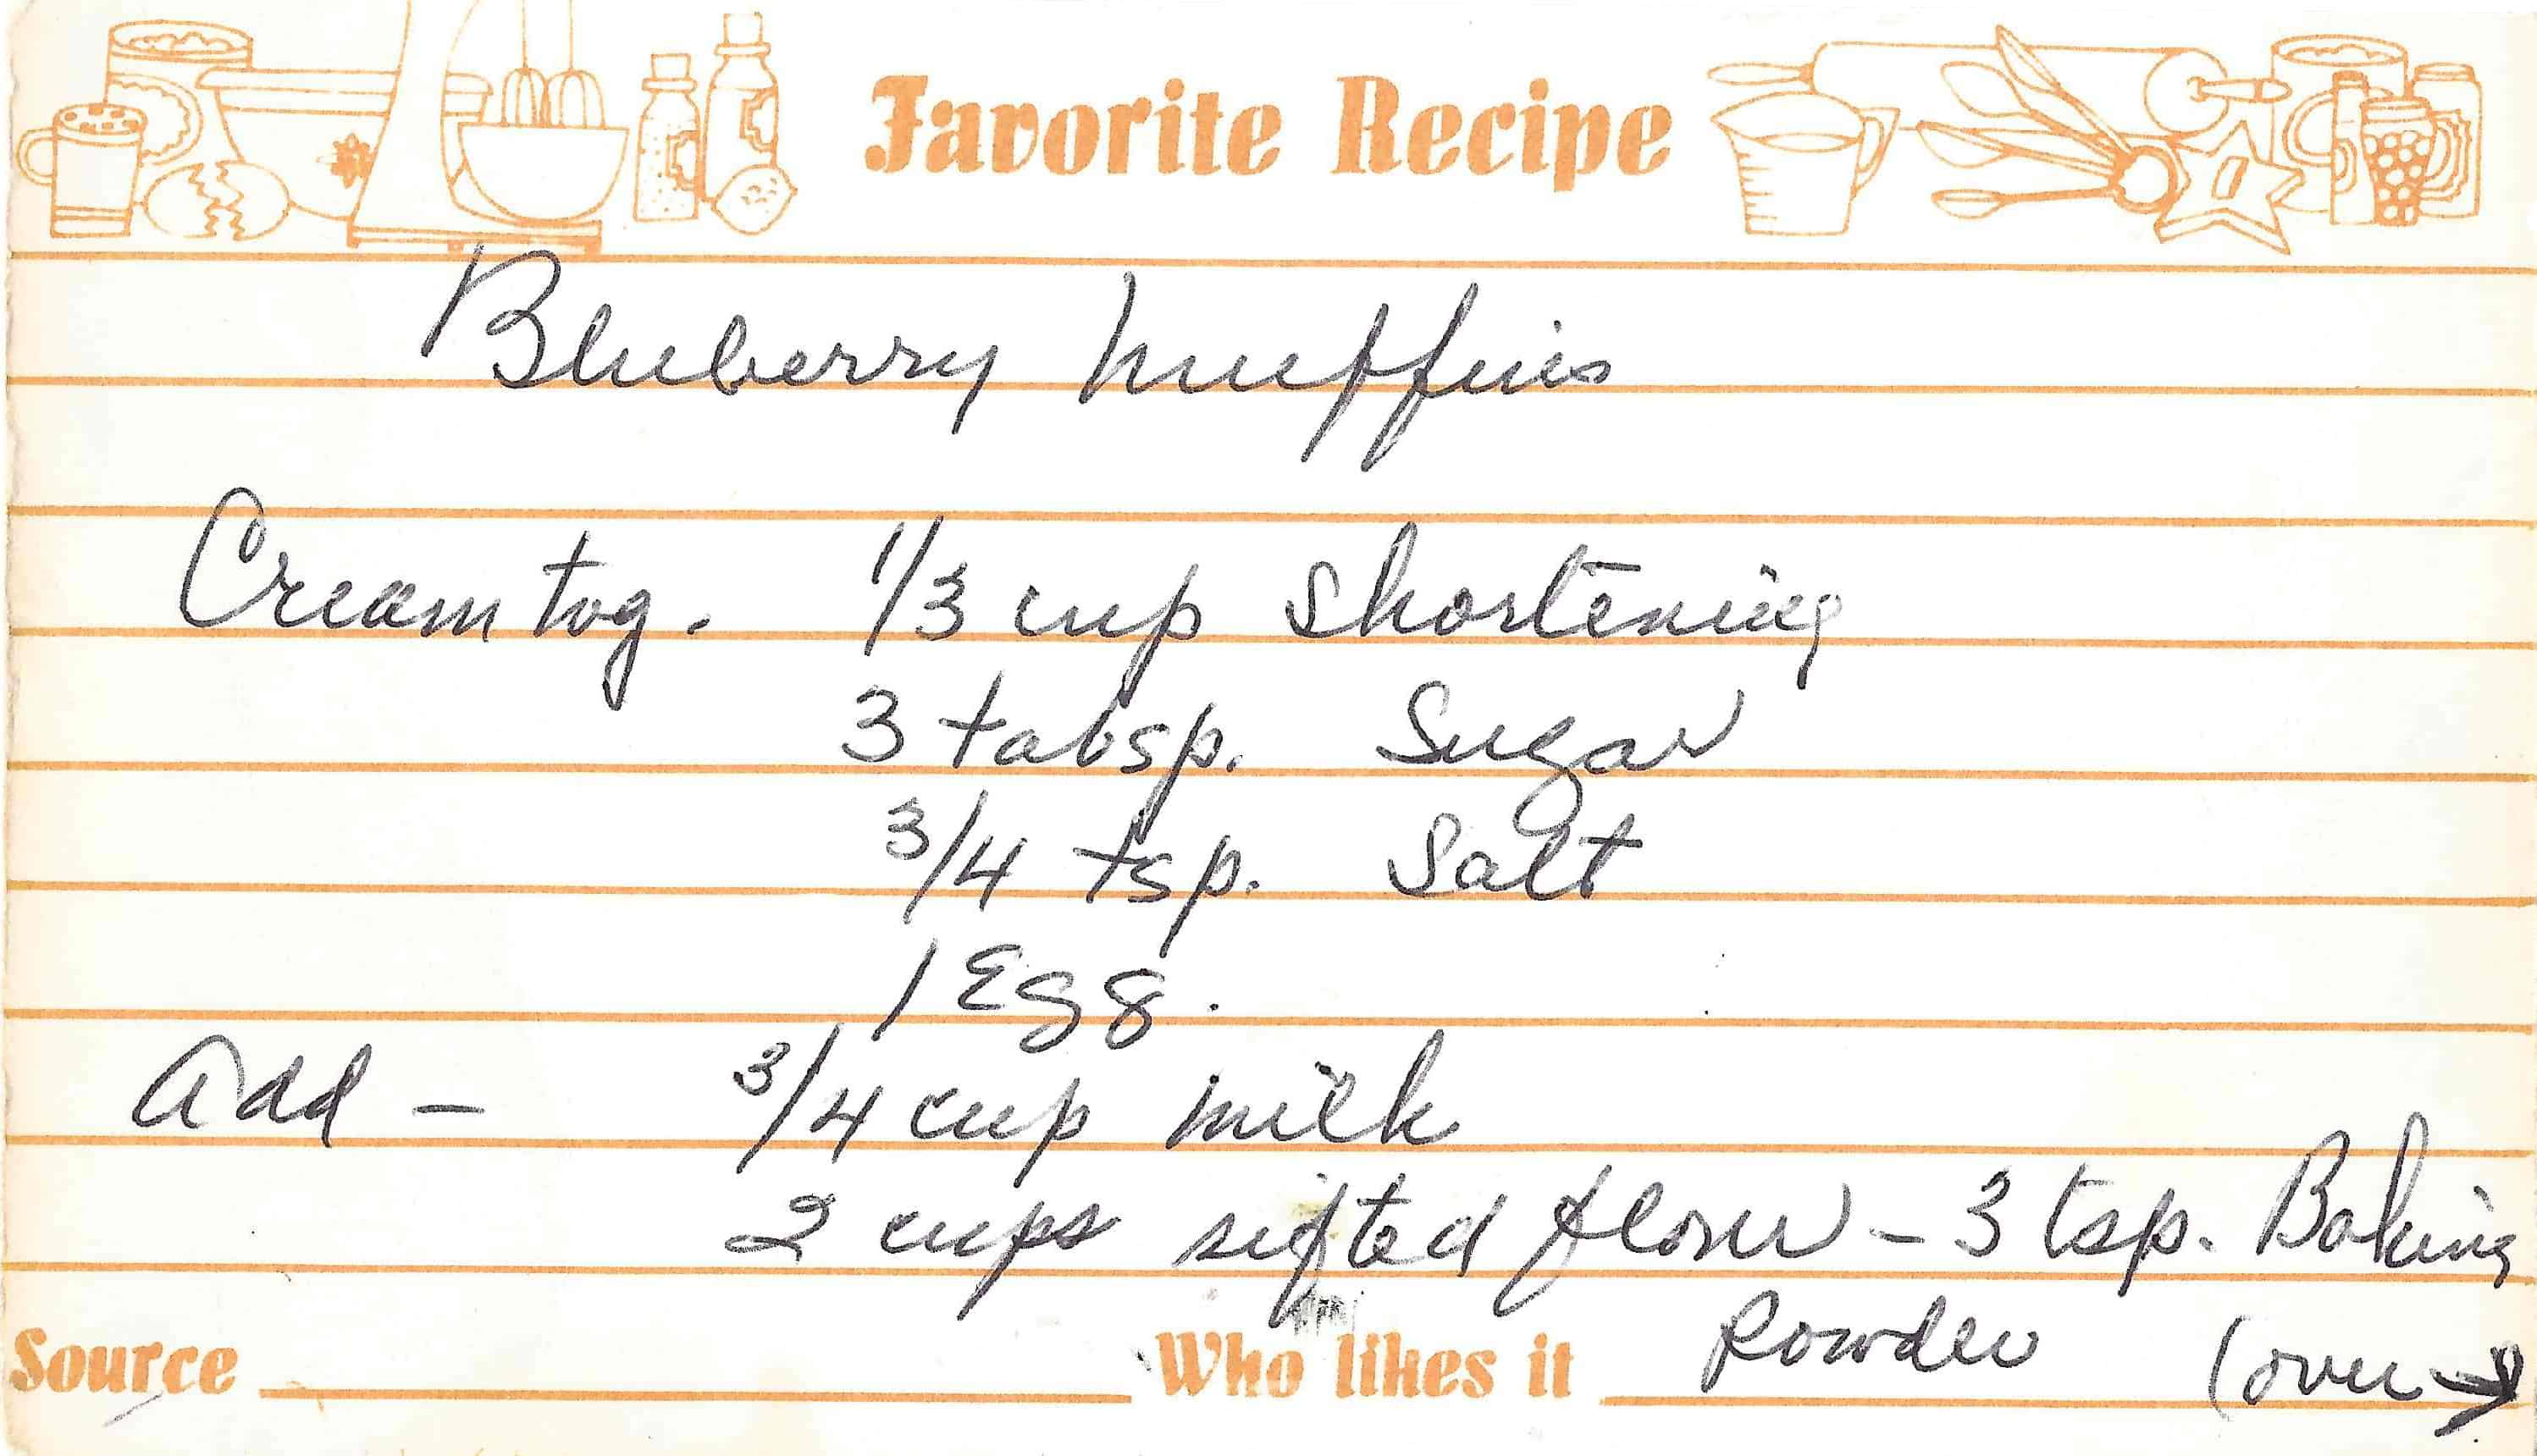 Favorite Recipe
Blueberry Muffins
Cream tog. 1/3 cup shortening
3 tabsp. Sugar
3/4 tsp. Salt
1 Egg.
Add - 3/4 cup milk
2 cups sifted flour - 3 tsp. Baking
Powder (over →
Source Who likes it